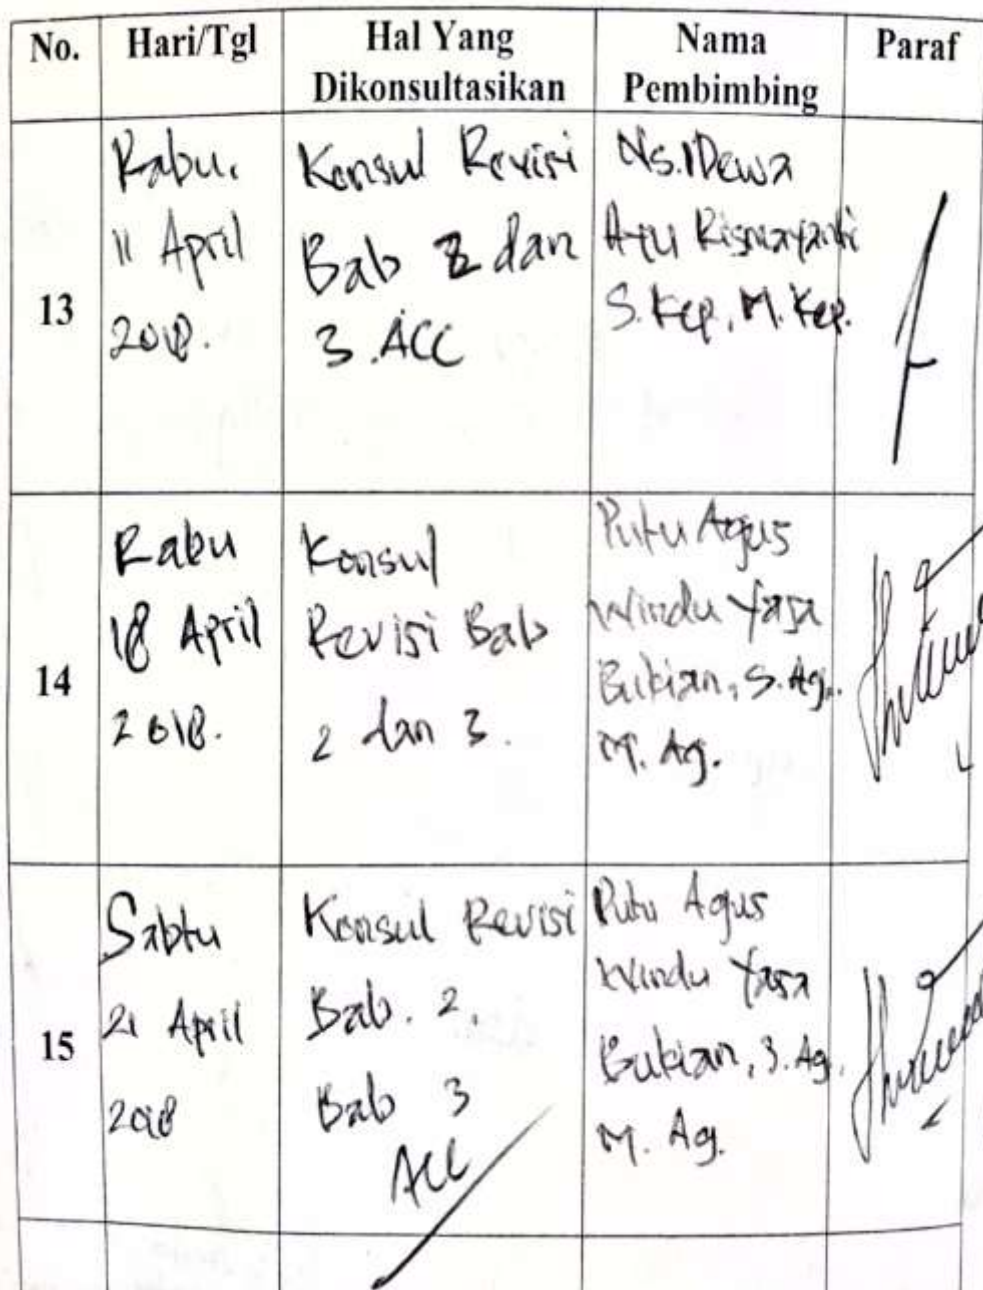 No.
Hari/Tgl
Hal Yang
Dikonsultasikan
Nama
Pembimbing
Paraf
13
Rabu,
11 April
2018.
Konsul Revisi
Bab 2 dan
3. ACC
Ns. IDewa
Ayu Rismayanti
S. Kep, M. Kep.
14
Rabu
18 April
2018.
Konsul
Revisi Bab
2 dan 3.
Putu Agus
Windu Yasa
Bukian, S. Ag.,
M. Ag.
15
Sabtu
21 April
2018
Konsul Revisi
Bab. 2.
Bab 3
ACC
Putu Agus
Windu Yasa
Bukian, S. Ag.,
M. Ag.